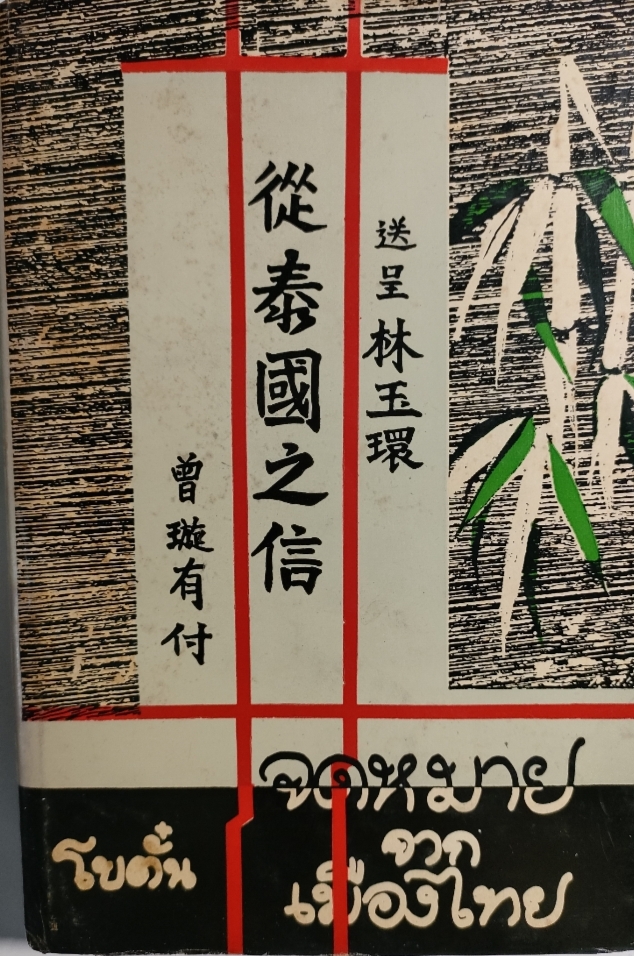 送呈林玉環
從泰國之信
曾璇有付
จดหมาย
จาก
เมืองไทย
โบตั๋น